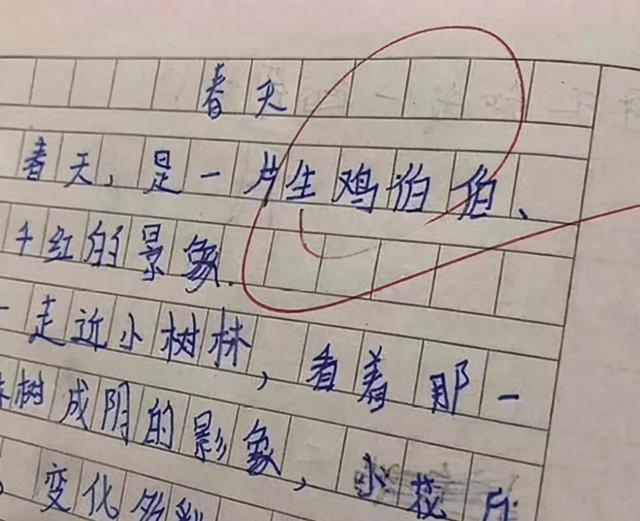 春天
春天,是一片生鸡泊伯、
千红的景象.
一走近小树林,看着那一
树成阴的影象,小花
变化多